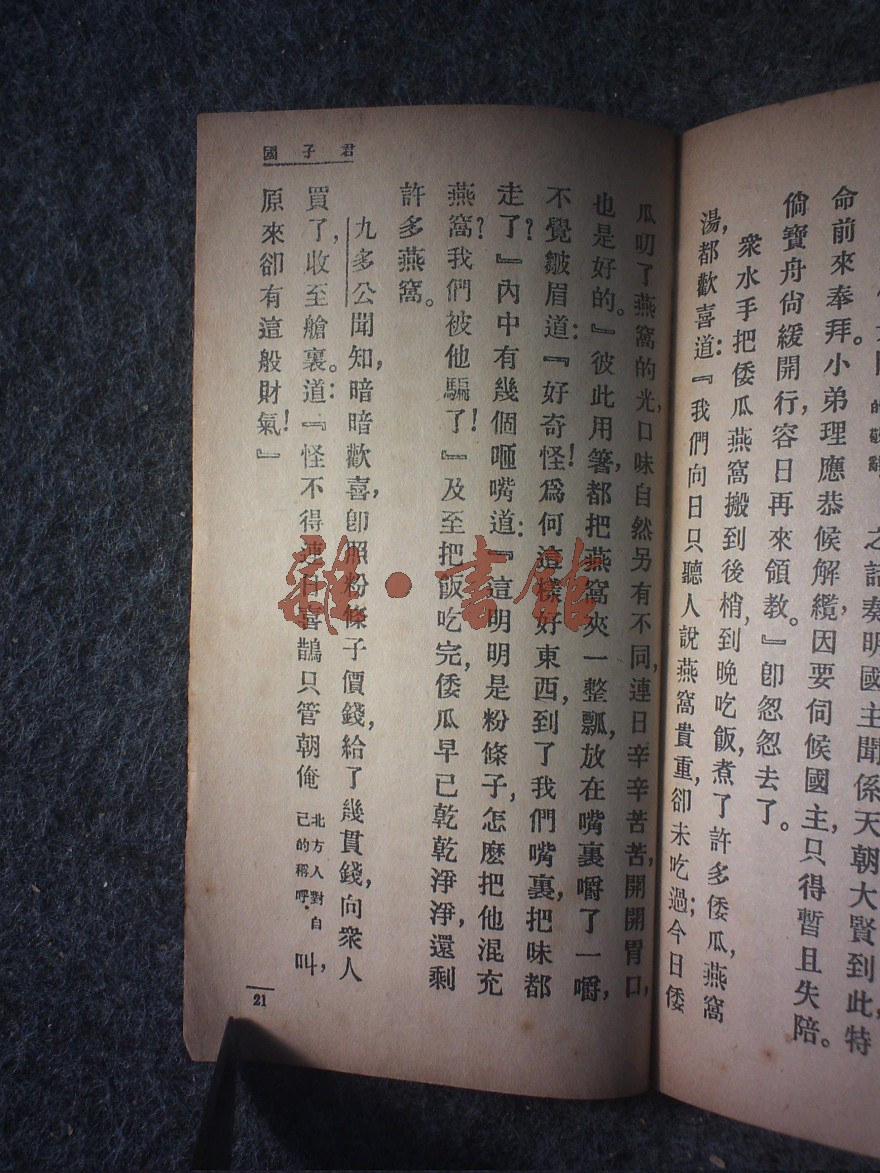 之話奏明國主聞係天朝大賢到此,特
的敬辭
命前來奉拜。小弟理應恭候解纜,因要伺候國主,只得暫且失陪。
倘寶舟尙緩開行,容日再來領教。』卽忽忽去了。
衆水手把倭瓜燕窩搬到後梢,到晚吃飯,煮了許多倭瓜,燕窩
湯,都歡喜道:『我們向日只聽人說燕窩貴重,卻未吃過;今日倭
君子國
瓜叨了燕窩的光,口味自然另有不同,連日辛辛苦苦,開開胃口,
也是好的。』彼此用箸,都把燕窩夾一整瓢,放在嘴裏嚼了一嚼,
不覺皺眉道:『好奇怪!爲何這樣好東西,到了我們嘴裏,把味都
走了?』內中有幾個咂嘴道:『這明明是粉條子,怎麼把他混充
燕窩?我們被他騙了!』及至把飯吃完,倭瓜早已乾乾淨淨,還剩
許多燕窩。
九多公聞知,暗暗歡喜,卽照粉條子價錢,給了幾貫錢,向衆人
買了,收至艙裏。道:『怪不得連日喜鵲只管朝俺北方人對自己的稱呼·叫,
原來卻有這般財氣!』
21
雜·書館